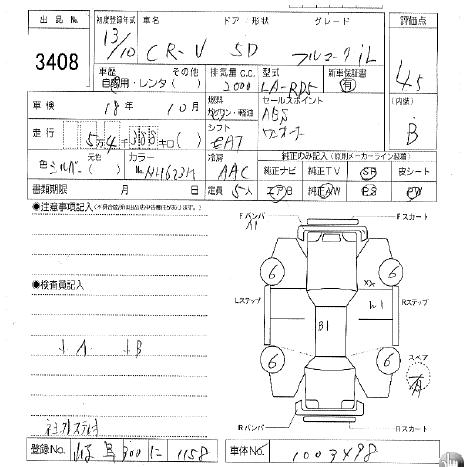 出品No. 初度登録年式 車名 ドア・形状 グレード 評価点
3408 13/10 CR-V 5D フルマーク iL 4.5
車歴 その他 排気量C.C. 型式 新車保証書
自家用・レンタ( ) 2000 LA-RD5 有
(内装)
車検 18年 10月 燃料 セールスポイント
ガソリン・軽油 ABS
B
走行 5万4 キロ( ) シフト
FAT
色 シルバー 元色( ) カラーNo. NH623M 冷房 AAC 純正のみ記入(原則メーカーライン装着)
純正ナビ 純正TV SR 皮シート
書類期限 月 日 定員 5人 エアB 純正AW PS PW
●注意事項記入
Fバンパ A1 Fスカート
6 6
XX
●検査員記入
Lステップ B1 W1 Rステップ
小A 小B
6 6 スペア
Rバンパ Rスカート
登録No. 300 に 1158 車体No. 1003498